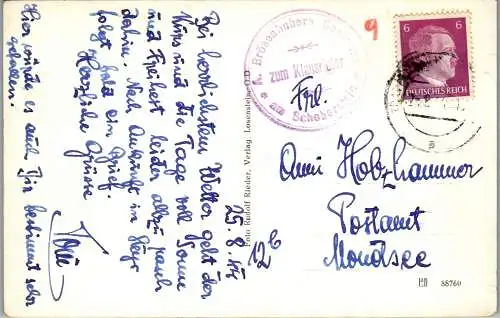 Hier würde es auch Dir bestimmt sehr
gefallen!
Bei herrlichstem Wetter geht der
Kurs und die Tage voll Sonne
und Freiheit leider allzu rasch
dahin. Nach Ankunft in Steyr
folgt bald ein Brief.
Herzliche Grüsse
25.8.44
12b
Foto Rudolf Rieder, Verlag Lowenstein
zum
am Schober
9
6 6
DEUTSCHES REICH
Frl.
Anni Holzhammer
Postamt
Mondsee
88760